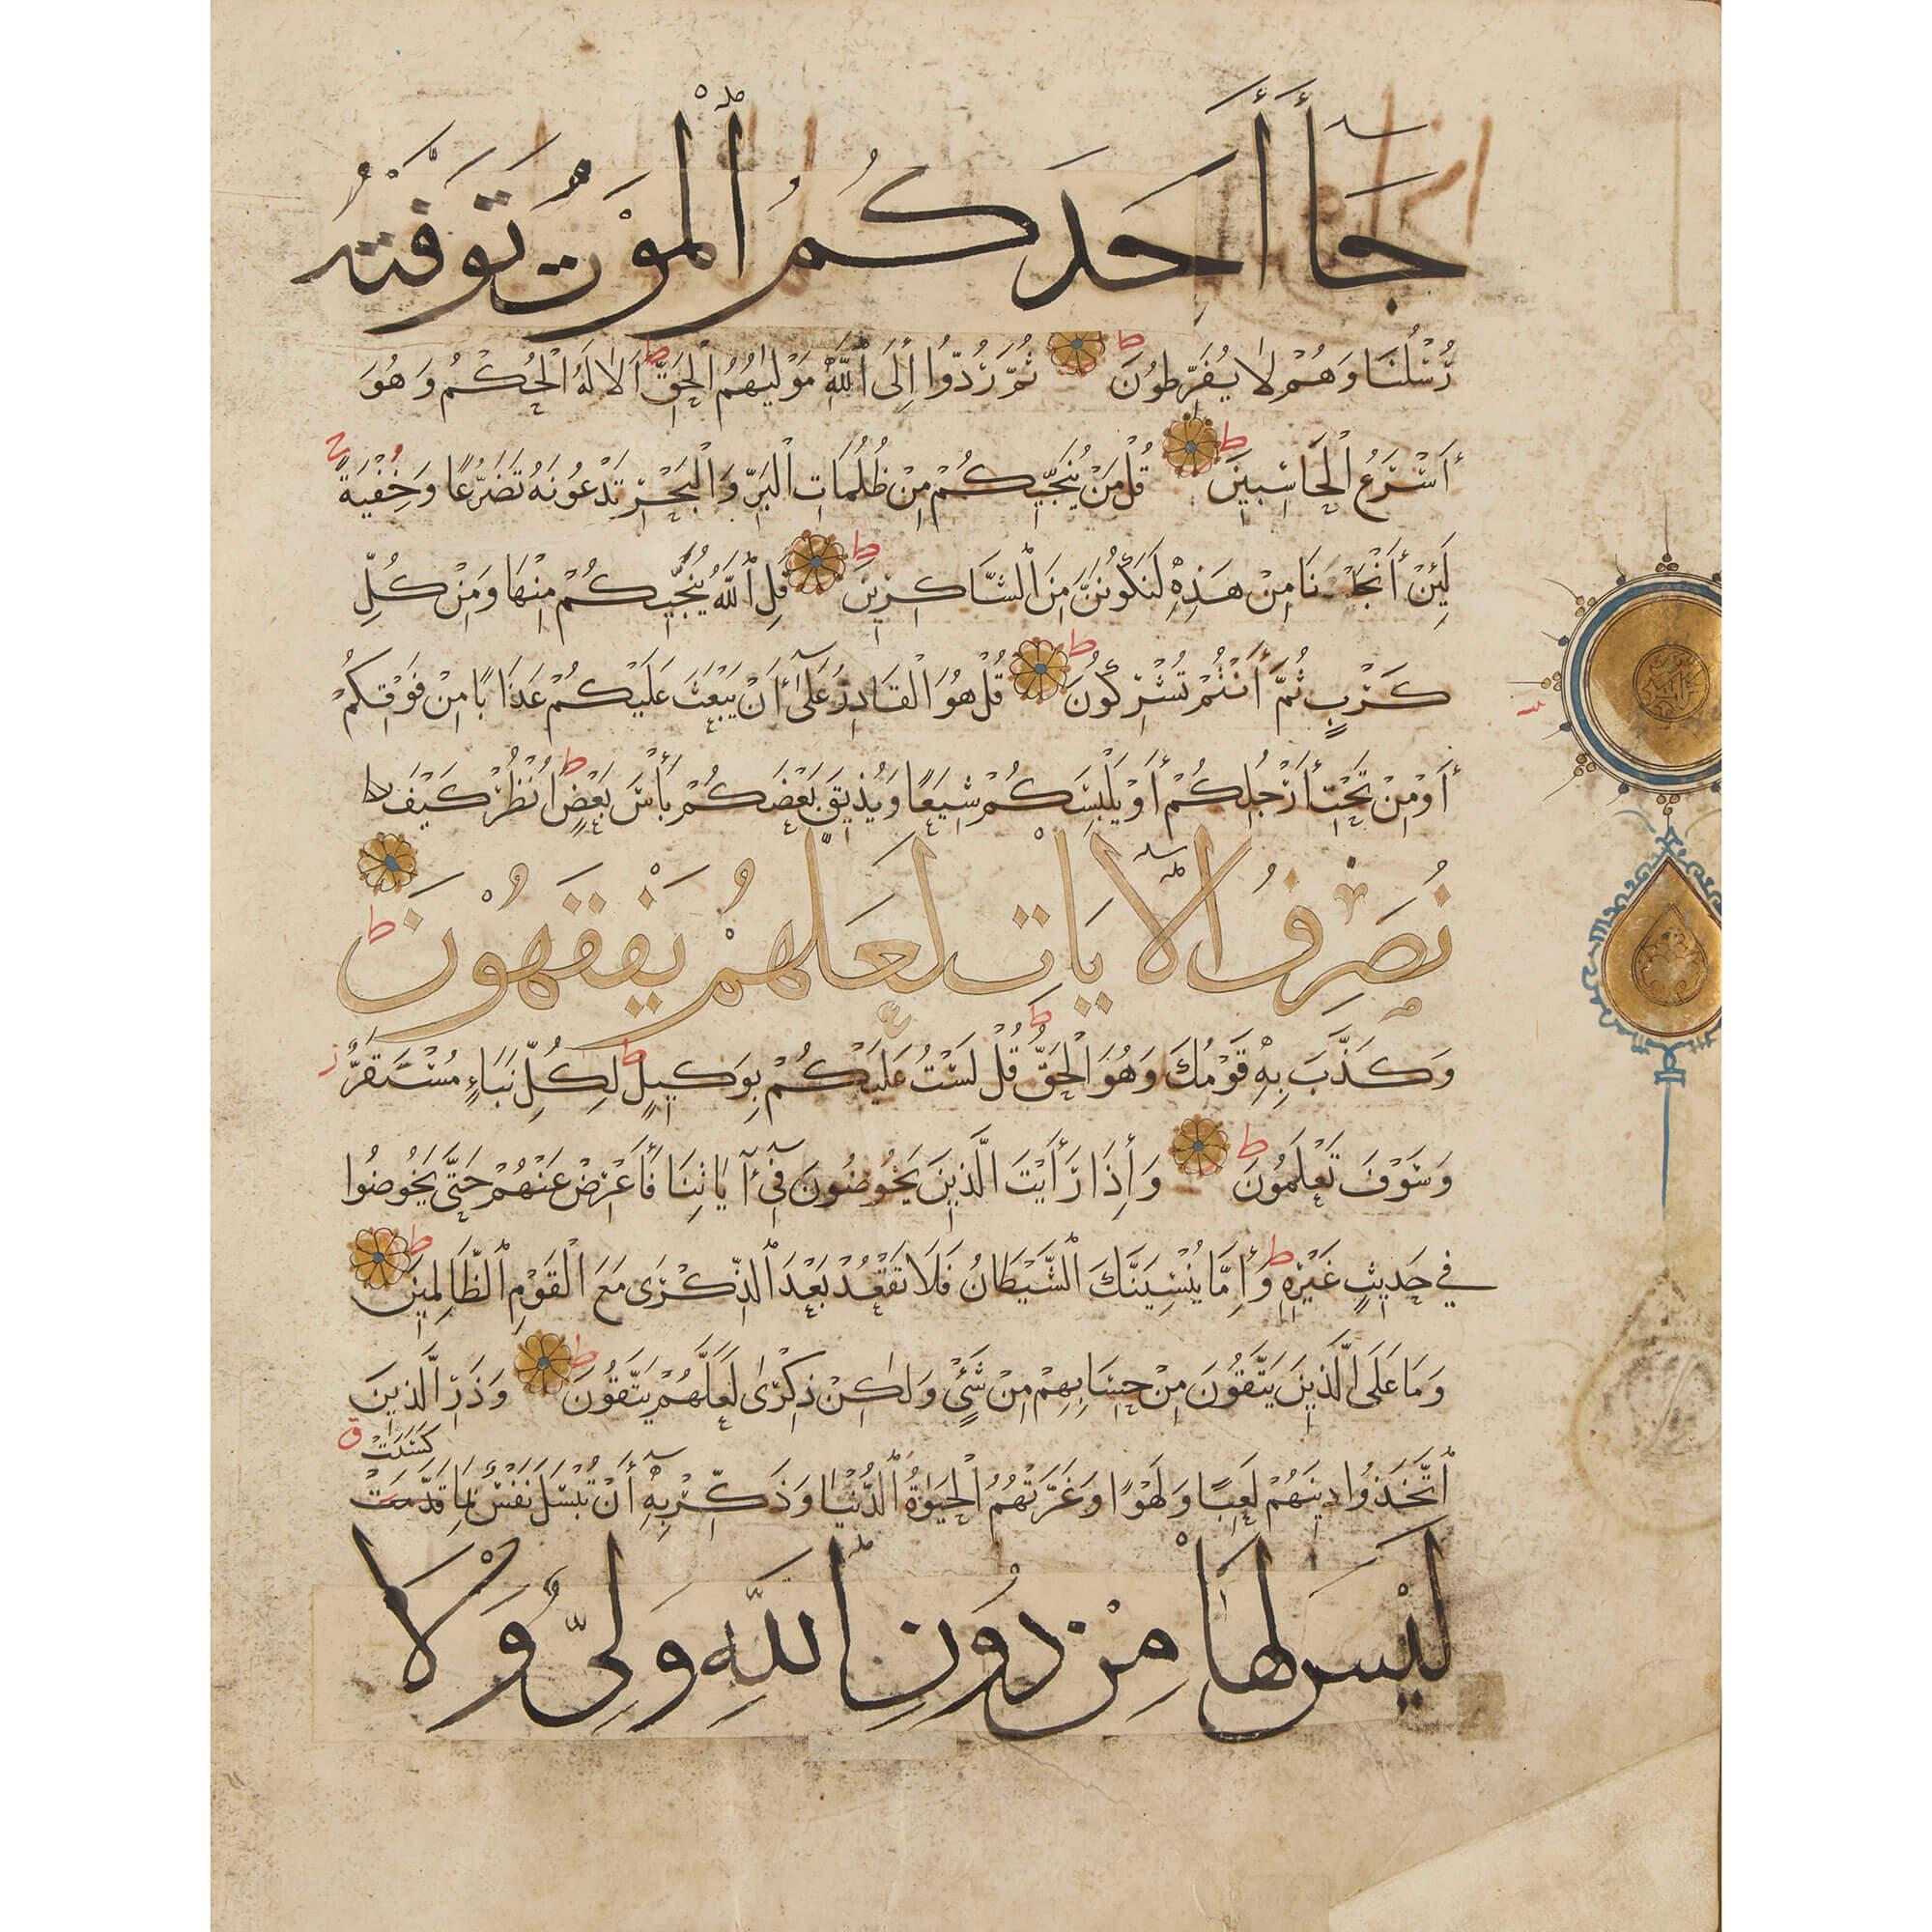 جَاءَ أَحَدَكُمُ ٱلْمَوْتُ تَوَفَّتْهُ
رُسُلُنَا وَهُمْ لَا يُفَرِّطُونَ ط ثُمَّ رُدُّوا إِلَى ٱللَّهِ مَوْلَيٰهُمُ ٱلْحَقِّ ط أَلَا لَهُ الْحُكْمُ وَهُوَ
أَسْرَعُ الْحَاسِبِينَ ط قُلْ مَنْ يُنَجِّيكُمْ مِنْ ظُلُمَاتِ الْبَرِّ وَالْبَحْرِ تَدْعُونَهُ تَضَرُّعًا وَخُفْيَةً ج
لَئِنْ أَنْجَانَا مِنْ هَذِهِ لَنَكُونَنَّ مِنَ ٱلشَّاكِرِينَ ط قُلِ ٱللَّهُ يُنَجِّيكُمْ مِنْهَا وَمِنْ كُلِّ
كَرْبٍ ثُمَّ أَنْتُمْ تُشْرِكُونَ ط قُلْ هُوَ الْقَادِرُ عَلَىٰٓ أَنْ يَبْعَثَ عَلَيْكُمْ عَذَابًا مِنْ فَوْقِكُمْ
أَوْ مِنْ تَحْتِ أَرْجُلِكُمْ أَوْ يَلْبِسَكُمْ شِيَعًا وَيُذِيقَ بَعْضَكُمْ بَأْسَ بَعْضٍ ط اُنْظُرْ كَيْفَ
نُصَرِّفُ الْآيَاتِ لَعَلَّهُمْ يَفْقَهُونَ ط
وَكَذَّبَ بِهِ قَوْمُكَ وَهُوَ الْحَقُّ ط قُلْ لَسْتُ عَلَيْكُمْ بِوَكِيلٍ ط لِكُلِّ نَبَاءٍ مُسْتَقَرٌّ ز
وَسَوْفَ تَعْلَمُونَ ط وَإِذَا رَأَيْتَ الَّذِينَ يَخُوضُونَ فِيٓ آيَاتِنَا فَأَعْرِضْ عَنْهُمْ حَتَّى يَخُوضُوا
فِي حَدِيثٍ غَيْرِهِ ط وَإِمَّا يُنْسِيَنَّكَ ٱلشَّيْطَانُ فَلَا تَقْعُدْ بَعْدَ ٱلذِّكْرَى مَعَ الْقَوْمِ ٱلظَّالِمِينَ ط
وَمَا عَلَى الَّذِينَ يَتَّقُونَ مِنْ حِسَابِهِمْ مِنْ شَيْءٍ وَلٰكِنْ ذِكْرَىٰ لَعَلَّهُمْ يَتَّقُونَ ط وَذَرِ الَّذِينَ
ٱتَّخَذُوا دِينَهُمْ لَعِبًا وَلَهْوًا وَغَرَّتْهُمُ الْحَيَوٰةُ ٱلدُّنْيَا وَذَكِّرْ بِهِ أَنْ تُبْسَلَ نَفْسٌ بِمَا كَسَبَتْ ق
لَيْسَ لَهَا مِنْ دُونِ اللَّهِ وَلِيٌّ وَلَا